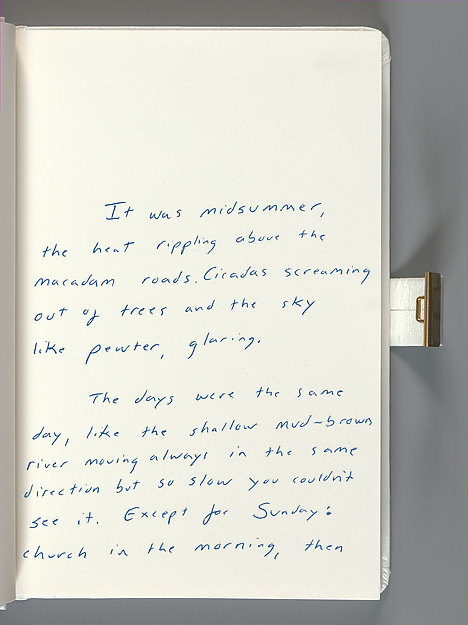 It was midsummer,
the heat rippling above the
macadam roads. Cicadas screaming
out of trees and the sky
like pewter, glaring.
The days were the same
day, like the shallow mud-brown
river moving always in the same
direction but so slow you couldn't
see it. Except for Sunday:
church in the morning, then